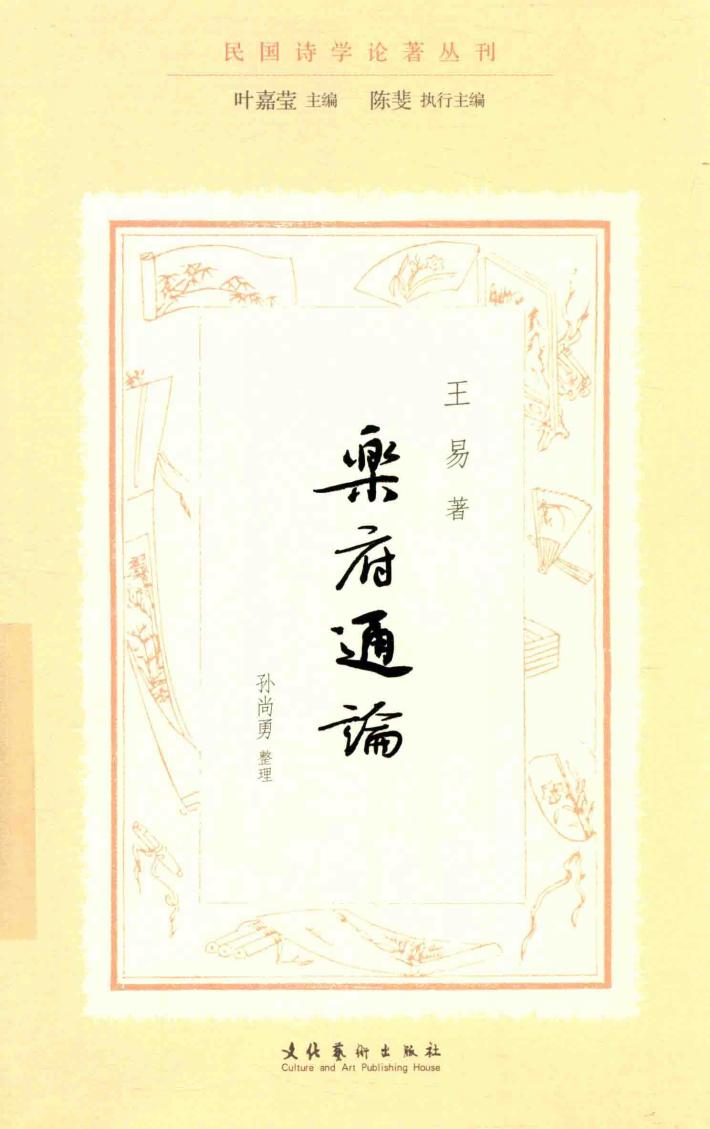 民国诗学论著丛刊
叶嘉莹 主编 陈斐 执行主编
王易著
樂府通論
孙尚勇 整理
文化藝術出版社
Culture and Art Publishing House